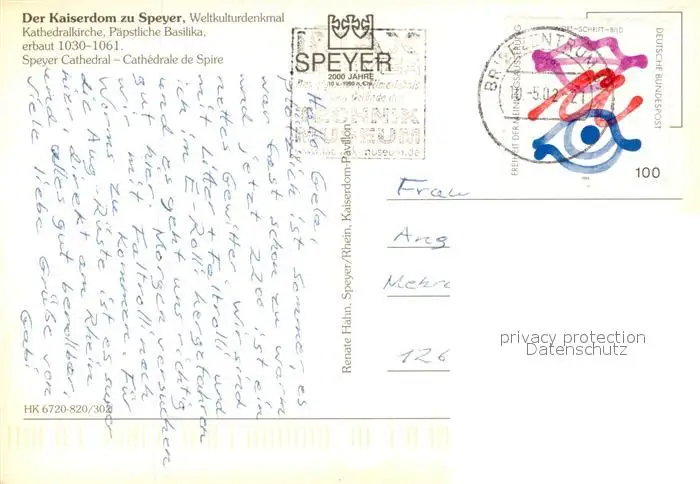 Der Kaiserdom zu Speyer, Weltkulturdenkmal
Kathedralkirche, Päpstliche Basilika,
erbaut 1030–1061.
Speyer Cathedral – Cathédrale de Spire
SPEYER
2000 JAHRE
10 v.-1990 n. Chr.
TECHNIK
MUSEUM
BRIEFZENTRUM
10.-5.02-21
FREIHEIT DER MEINUNGSÄUSSERUNG
WORT-SCHRIFT-BILD
DEUTSCHE BUNDESPOST
100
Hallo Gela!
Plötzlich ist Sommer, es
war fast schon zu warm
und jetzt 22⁰⁰ ist ein
nettes Gewitter. Wir sind
mit Lifter + Faltrolli und
ich im E-Rolli hergefahren
und es geht uns richtig
gut hier. Morgen versuchen
wir mit Faltrolli nach
Worms zu kommen. Für
die Aug-Rüste ist es super
hier, direkt am Rhein
und alles gut berollbar.
Viele liebe Grüße von
Gabi
Renate Hahn, Speyer/Rhein, Kaiserdom-Pavillon
Frau
Ang
Mehr
126
privacy protection
Datenschutz
HK 6720-820/302